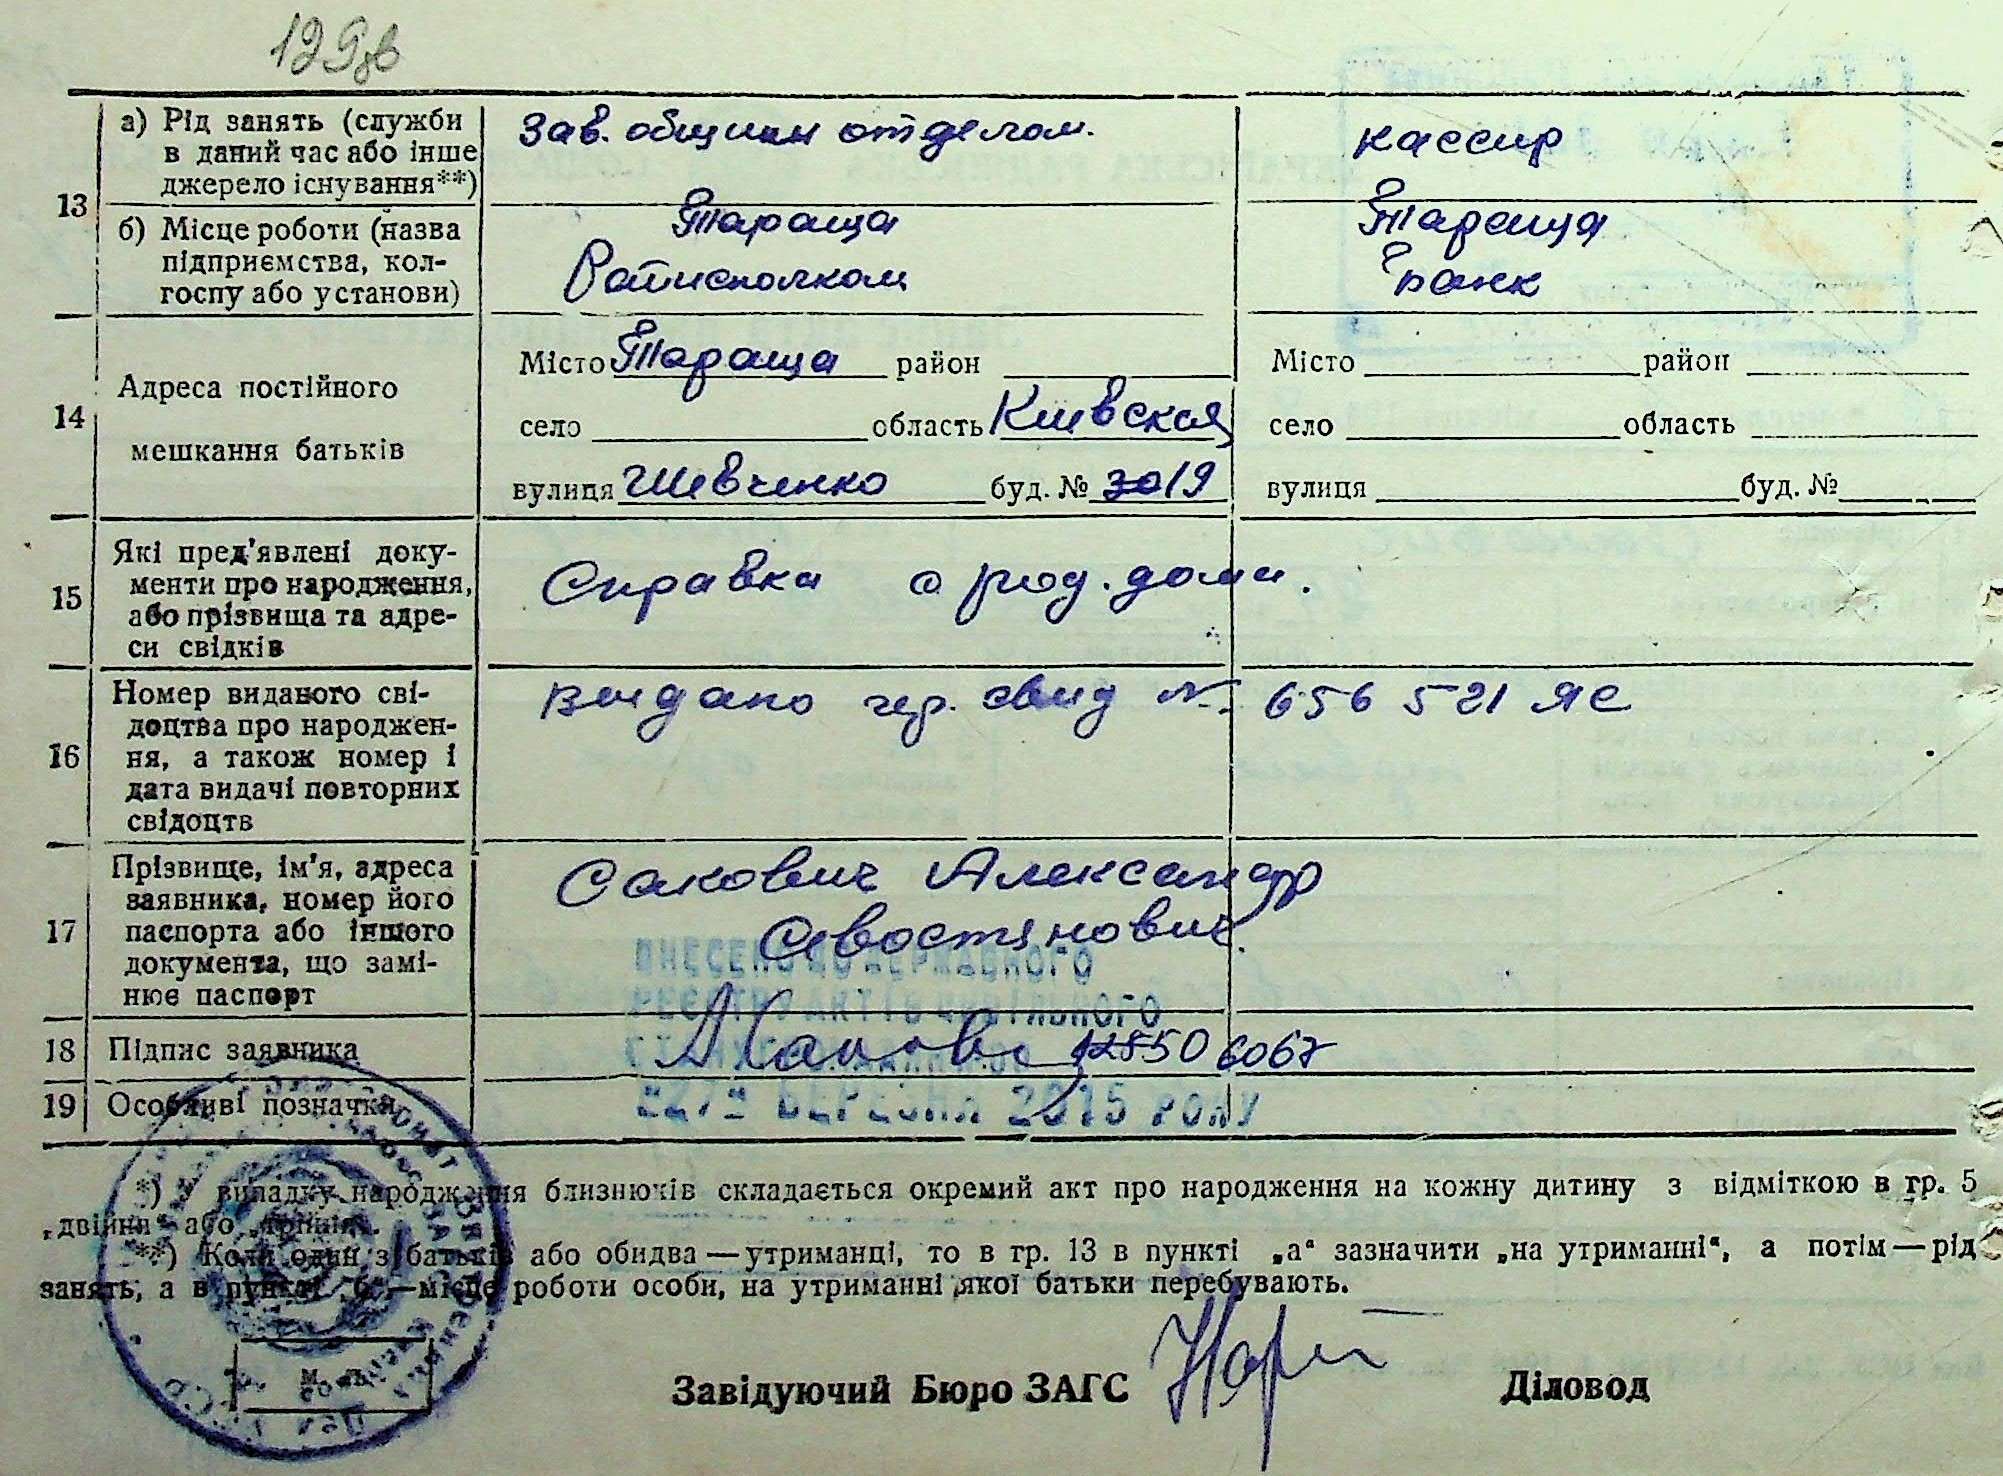 129зв
13
а) Рід занять (служби
в даний час або інше
джерело існування**)
Зав. общим отделом.
кассир
б) Місце роботи (назва
підприємства, кол-
госпу або установи)
Тараща
Райисполком
Тараща
Банк
14
Адреса постійного
мешкання батьків
Місто Тараща район
село область Киевская
вулиця Шевченко буд. № 19
Місто район
село область
вулиця буд. №
15
Які пред'явлені доку-
менти про народження,
або прізвища та адре-
си свідків
Справка с род. дома.
16
Номер виданого сві-
доцтва про народжен-
ня, а також номер і
дата видачі повторних
свідоцтв
Выдано гер. свид № 656521 ЯС
17
Прізвище, ім'я, адреса
заявника, номер його
паспорта або іншого
документа, що замі-
нює паспорт
Сакович Александр
Севостянович.
ВНЕСЕНО ДО ДЕРЖАВНОГО
РЕЄСТРУ АКТІВ ЦИВІЛЬНОГО
18 Підпис заявника
19 Особливі позначки
"27" БЕРЕЗНЯ 2015 РОКУ
*) У випадку народження близнюків складається окремий акт про народження на кожну дитину з відміткою в гр. 5
„двійня“ або „трійня“.
**) Коли один з батьків або обидва — утриманці, то в гр. 13 в пункті „а“ зазначити „на утриманні“, а потім — рід
занять, а в пункті „б“ — місце роботи особи, на утриманні якої батьки перебувають.
М. П.
Завідуючий Бюро ЗАГС
Діловод